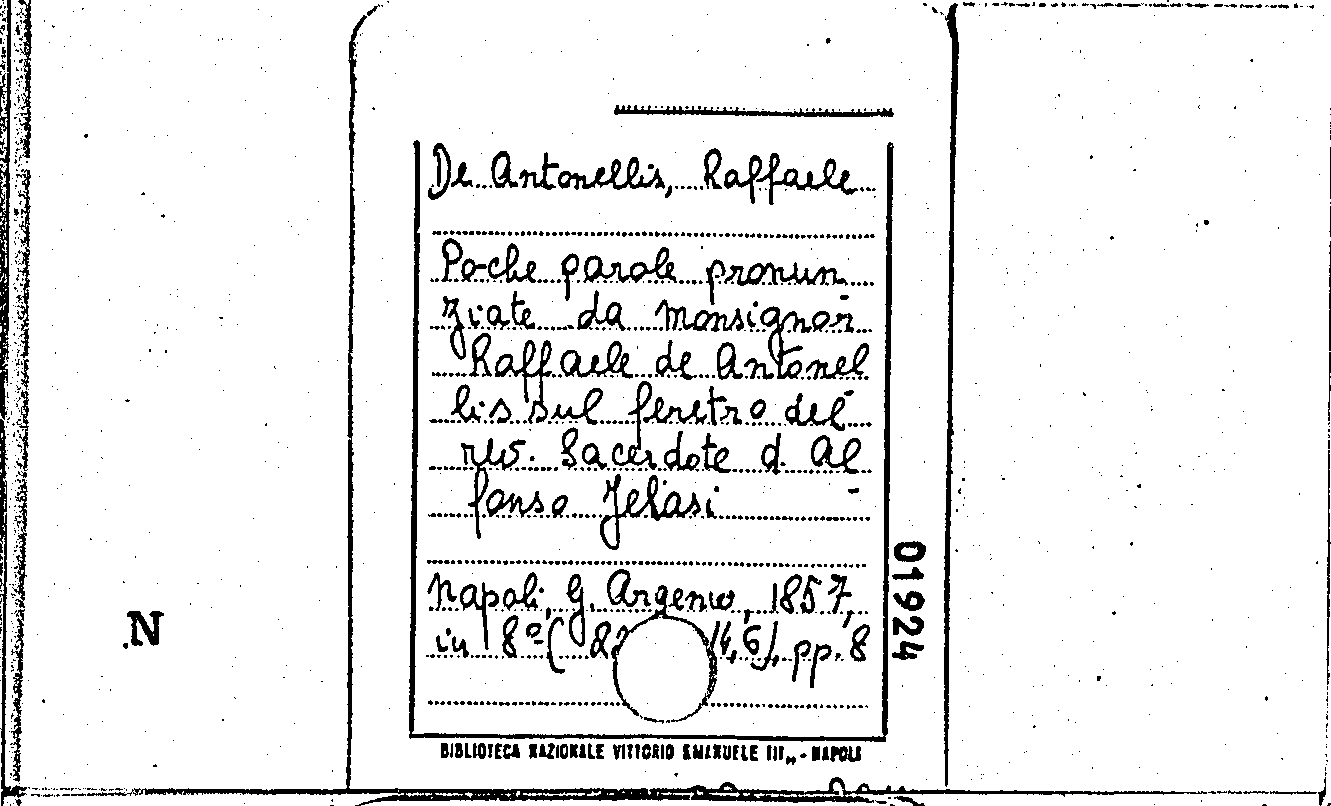 De Antonellis, Raffaele
Poche parole pronun
ziate da monsignor
Raffaele de Antonel
lis sul feretro del
rev. Sacerdote d. Al
fonso Jelasi
Napoli, G. Argenio, 1857,
in 8º ( 22 14,6), pp. 8
01924
N
BIBLIOTECA NAZIONALE VITTORIO EMANUELE III„ - NAPOLI